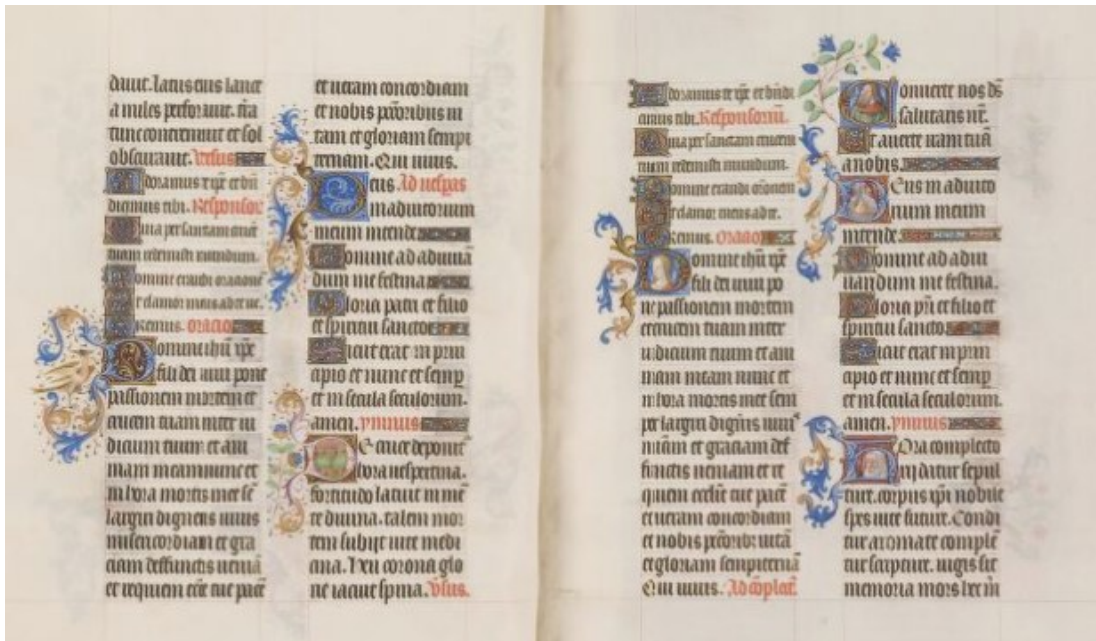 dauit. latus eius lance
a miles perforauit. tr̄a
tunc contremuit et sol
obscurauit. Vesus
Adoramus te xp̄e et bn̄
dicimus tibi. Responsor
Quia per sanctam cruce
tuam redemisti mundum.
Domine exaudi orationē
Et clamor meus ad te ue.
Oremus. oracio
Domine ihū xp̄e
fili dei uiui pone
passionem mortem et
crucem tuam inter iu
dicium tuum et ani
mam meam nunc et
in hora mortis mee
largiri digneris uiuis
misericordiam et gra
ciam deffunctis ueniā
et requiem eccl̄ie tue pacē
et ueram concordiam
et nobis pctōribus ui
tam et gloriam sempi
ternam. Qui uiuis.
Deus Ad uespas
in adiutorium
meum intende
Domine ad adiuuā
dum me festina
Gloria patri et filio
et spiritui sancto
Sicut erat in prin
cipio et nunc et semp̄
et in secula seculorum.
amen. ymnus
De cruce deponit̄
hora uespertina.
fortitudo latuit in mē
te diuina. talem mor
tem subijt uite medi
cina. heu corona glo
rie iacuit supina. Vsus.
Adoramus te xp̄e et bn̄di
cimus tibi. Responsoriū.
Quia per sanctam crucem
tuam redemisti mundum.
Domine exaudi oronem
Et clamor meus ad te.
Oremus. oracio
Domine ihū xp̄e
fili dei uiui po
ne passionem mortem
et crucem tuam inter
iudicium tuum et ani
mam meam nunc et
in hora mortis mee
per largiri digneris uiuis
miām et graciam def
functis ueniam et re
quiem eccl̄ie tue pacē
et ueram concordiam
et nobis pctōrib; uitā
et gloriam sempiternā
Qui uiuis. Ad cōplet̄.
Conuerte nos ds̄
salutaris nr̄.
Et auerte iram tuā
a nobis.
Deus in adiuto
rium meum
intende.
Domine ad adiu
uandum me festina.
Gloria pr̄i et filio et
spiritui sancto.
Sicut erat in prin
cipio et nunc et semp̄
et in secula seculorum.
amen. ymnus
Hora complecto
rij datur sepul
ture. corpus xp̄i nobile
spes uite future. Condi
tur aromate comple
tur scripture. iugis sit
memoria mors hec m̄